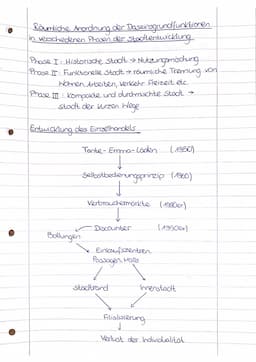 Räumliche Anordnung der Daseinsgrundfunktionen
in verschiedenen Phasen der Stadtentwicklung
Phase I : Historische Stadt → Nutzungsmischung
Phase II : Funktionelle Stadt → räumliche Trennung von
Wohnen, Arbeiten, Verkehr, Freizeit etc.
Phase III : Kompakte und durchmischte Stadt →
Stadt der kurzen Wege
Entwicklung des Einzelhandels
Tante-Emma-Laden (1950)
Selbstbedienungsprinzip (1960)
Verbrauchermärkte
Discounter
Ballungen
Einkaufszentren
Passagen, Malls
Stadtrand Innenstadt
Filialisierung
Verlust der Individualität